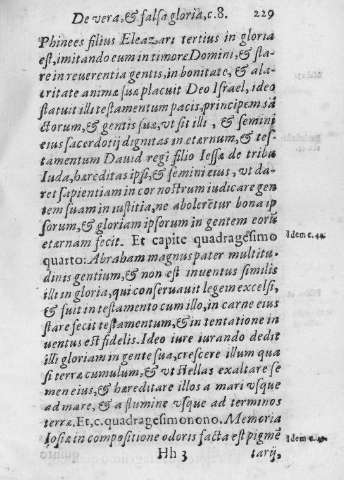 De vera, & falsa gloria, c. 8. 229
Phinees filius Eleazari tertius in gloria
est, imitando eum in timore Domini, & sta-
re in reuerentia gentis, in bonitate, & ala-
critate animæ suæ placuit Deo Israel, ideo
statuit illi testamentum pacis, principem sā
ctorum, & gentis suæ, vt sit illi, & semini
eius sacerdotij dignitas in etarnum, & tes-
tamentum Dauid regi filio Iessæ de tribu
Iuda, hæreditas ipsi, & semini eius, vt da-
ret sapientiam in cor nostrum iudicare gen
tem suam in iustitia, ne aboleretur bona ip
sorum, & gloriam ipsorum in gentem eorū
etarnam fecit. Et capite quadragesimo Idem c. 44.
quarto: Abraham magnus pater multitu-
dinis gentium, & non est inuentus similis
illi in gloria, qui conseruauit legem excelsi,
& fuit in testamento cum illo, in carne eius
stare fecit testamentum, & in tentatione in
uentus est fidelis. Ideo iure iurando dedit
illi gloriam in gente sua, crescere illum qua
si terræ cumulum, & vt stellas exaltare se
men eius, & hæreditare illos a mari vsque
ad mare, & a flumine vsque ad terminos
terræ. Et, c. quadragesimonono. Memoria
Iosiæ in compositione odoris facta est pigmē Idem c. 49.
Hh 3 tarij,